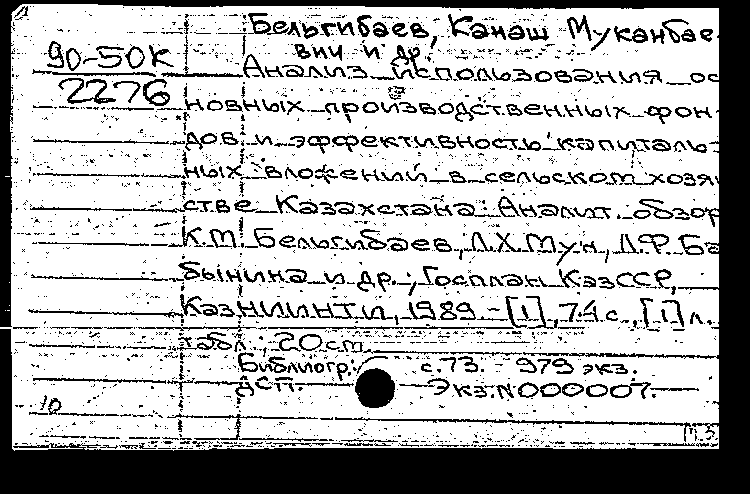 Бельгибаев, Канаш Муканбае-
90-50К
вич и др.
Анализ использования ос
2276
новных производственных фон-
дов и эффективность капиталь-
ных вложений в сельском хозя
стве Казахстана: Аналит. обзор
К.М. Бельгибаев, Л.Х. Мун, Л.Ф. Ба
бынина и др.; Госплан КазССР,
КазНИИНТИ, 1989. - [1], 74 с., [1] л.
табл.; 20 cm
Библиогр.: с. 73. - 979 экз.
ДСП. Экз. N 000007.
10